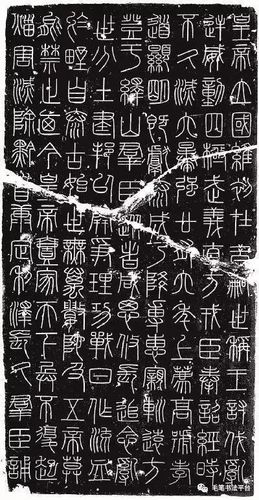 皇帝立國維初在昔嗣世稱王討伐亂
逆威動四極武義直方戎臣奉詔經時
不久滅六暴強廿有六年上薦高號孝
道顯明既獻泰成乃降專惠親巡遠方
登于繹山群臣從者咸思攸長追念亂
世分土建邦以開爭理功戰日作流血
於野自泰古始世無萬數陀及五帝莫
能禁止乃今皇帝壹家天下兵不復起
災害滅除黔首康定利澤長久群臣誦
毛笔书法平台